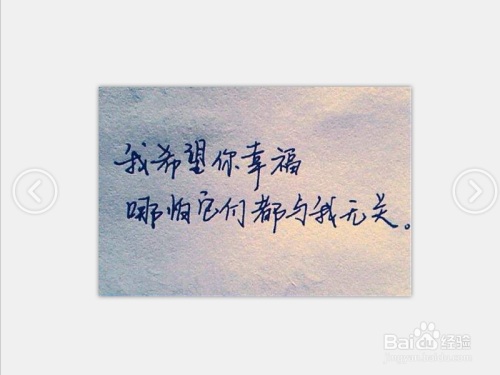 我希望你幸福
哪怕它们都与我无关。
Baidu经验
jingyan.baidu.com